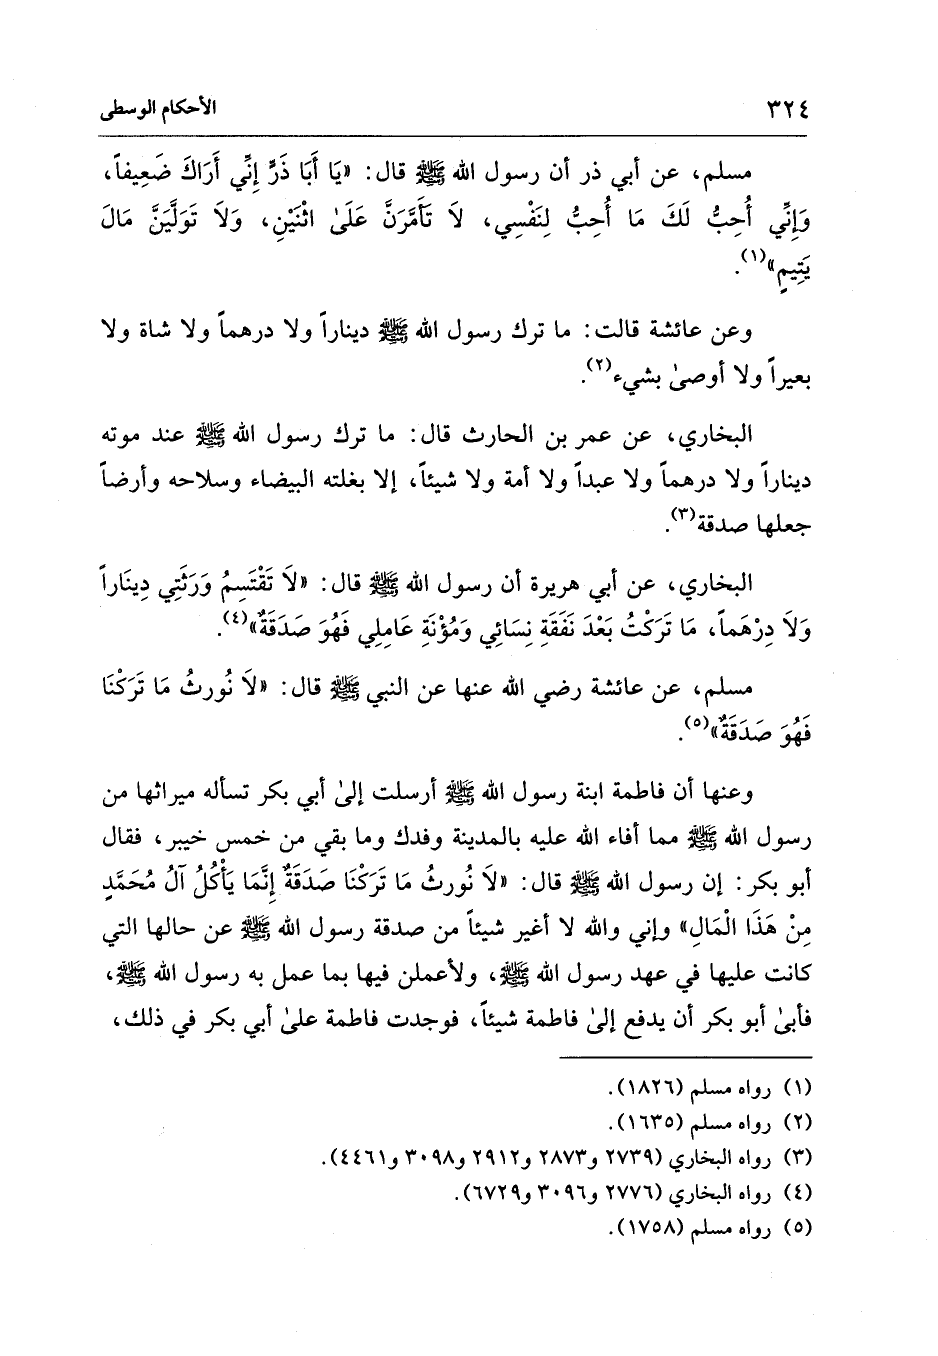 ٣٢٤ الأحكام الوسطى
مسلم، عن أبي ذر أن رسول الله ﷺ قال: «يَا أَبَا ذَرٍّ إِنِّي أَرَاكَ ضَعِيفاً،
وَإِنِّي أُحِبُّ لَكَ مَا أُحِبُّ لِنَفْسِي، لاَ تَأَمَّرَنَّ عَلَىٰ اثْنَيْنِ، وَلاَ تَوَلَّيَنَّ مَالَ
يَتِيمٍ»(١).
وعن عائشة قالت: ما ترك رسول الله ﷺ ديناراً ولا درهماً ولا شاة ولا
بعيراً ولا أوصىٰ بشيء(٢).
البخاري، عن عمر بن الحارث قال: ما ترك رسول الله ﷺ عند موته
ديناراً ولا درهماً ولا عبداً ولا أمة ولا شيئاً، إلا بغلته البيضاء وسلاحه وأرضاً
جعلها صدقة(٣).
البخاري، عن أبي هريرة أن رسول الله ﷺ قال: «لاَ تَقْتَسِمُ وَرَثَتِي دِينَاراً
وَلاَ دِرْهَماً، مَا تَرَكْتُ بَعْدَ نَفَقَةِ نِسَائِي وَمُؤْنَةِ عَامِلِي فَهُوَ صَدَقَةٌ»(٤).
مسلم، عن عائشة رضي الله عنها عن النبي ﷺ قال: «لاَ نُورثُ مَا تَرَكْنَا
فَهُوَ صَدَقَةٌ»(٥).
وعنها أن فاطمة ابنة رسول الله ﷺ أرسلت إلىٰ أبي بكر تسأله ميراثها من
رسول الله ﷺ مما أفاء الله عليه بالمدينة وفدك وما بقي من خمس خيبر، فقال
أبو بكر: إن رسول الله ﷺ قال: «لاَ نُورثُ مَا تَرَكْنَا صَدَقَةٌ إِنَّمَا يَأْكُلُ آلُ مُحَمَّدٍ
مِنْ هَذَا الْمَالِ» وإني والله لا أغير شيئاً من صدقة رسول الله ﷺ عن حالها التي
كانت عليها في عهد رسول الله ﷺ، ولأعملن فيها بما عمل به رسول الله ﷺ،
فأبىٰ أبو بكر أن يدفع إلىٰ فاطمة شيئاً، فوجدت فاطمة علىٰ أبي بكر في ذلك،
(١) رواه مسلم (١٨٢٦).
(٢) رواه مسلم (١٦٣٥).
(٣) رواه البخاري (٢٧٣٩ و٢٨٧٣ و٢٩١٢ و٣٠٩٨ و٤٤٦١).
(٤) رواه البخاري (٢٧٧٦ و٣٠٩٦ و٦٧٢٩).
(٥) رواه مسلم (١٧٥٨).